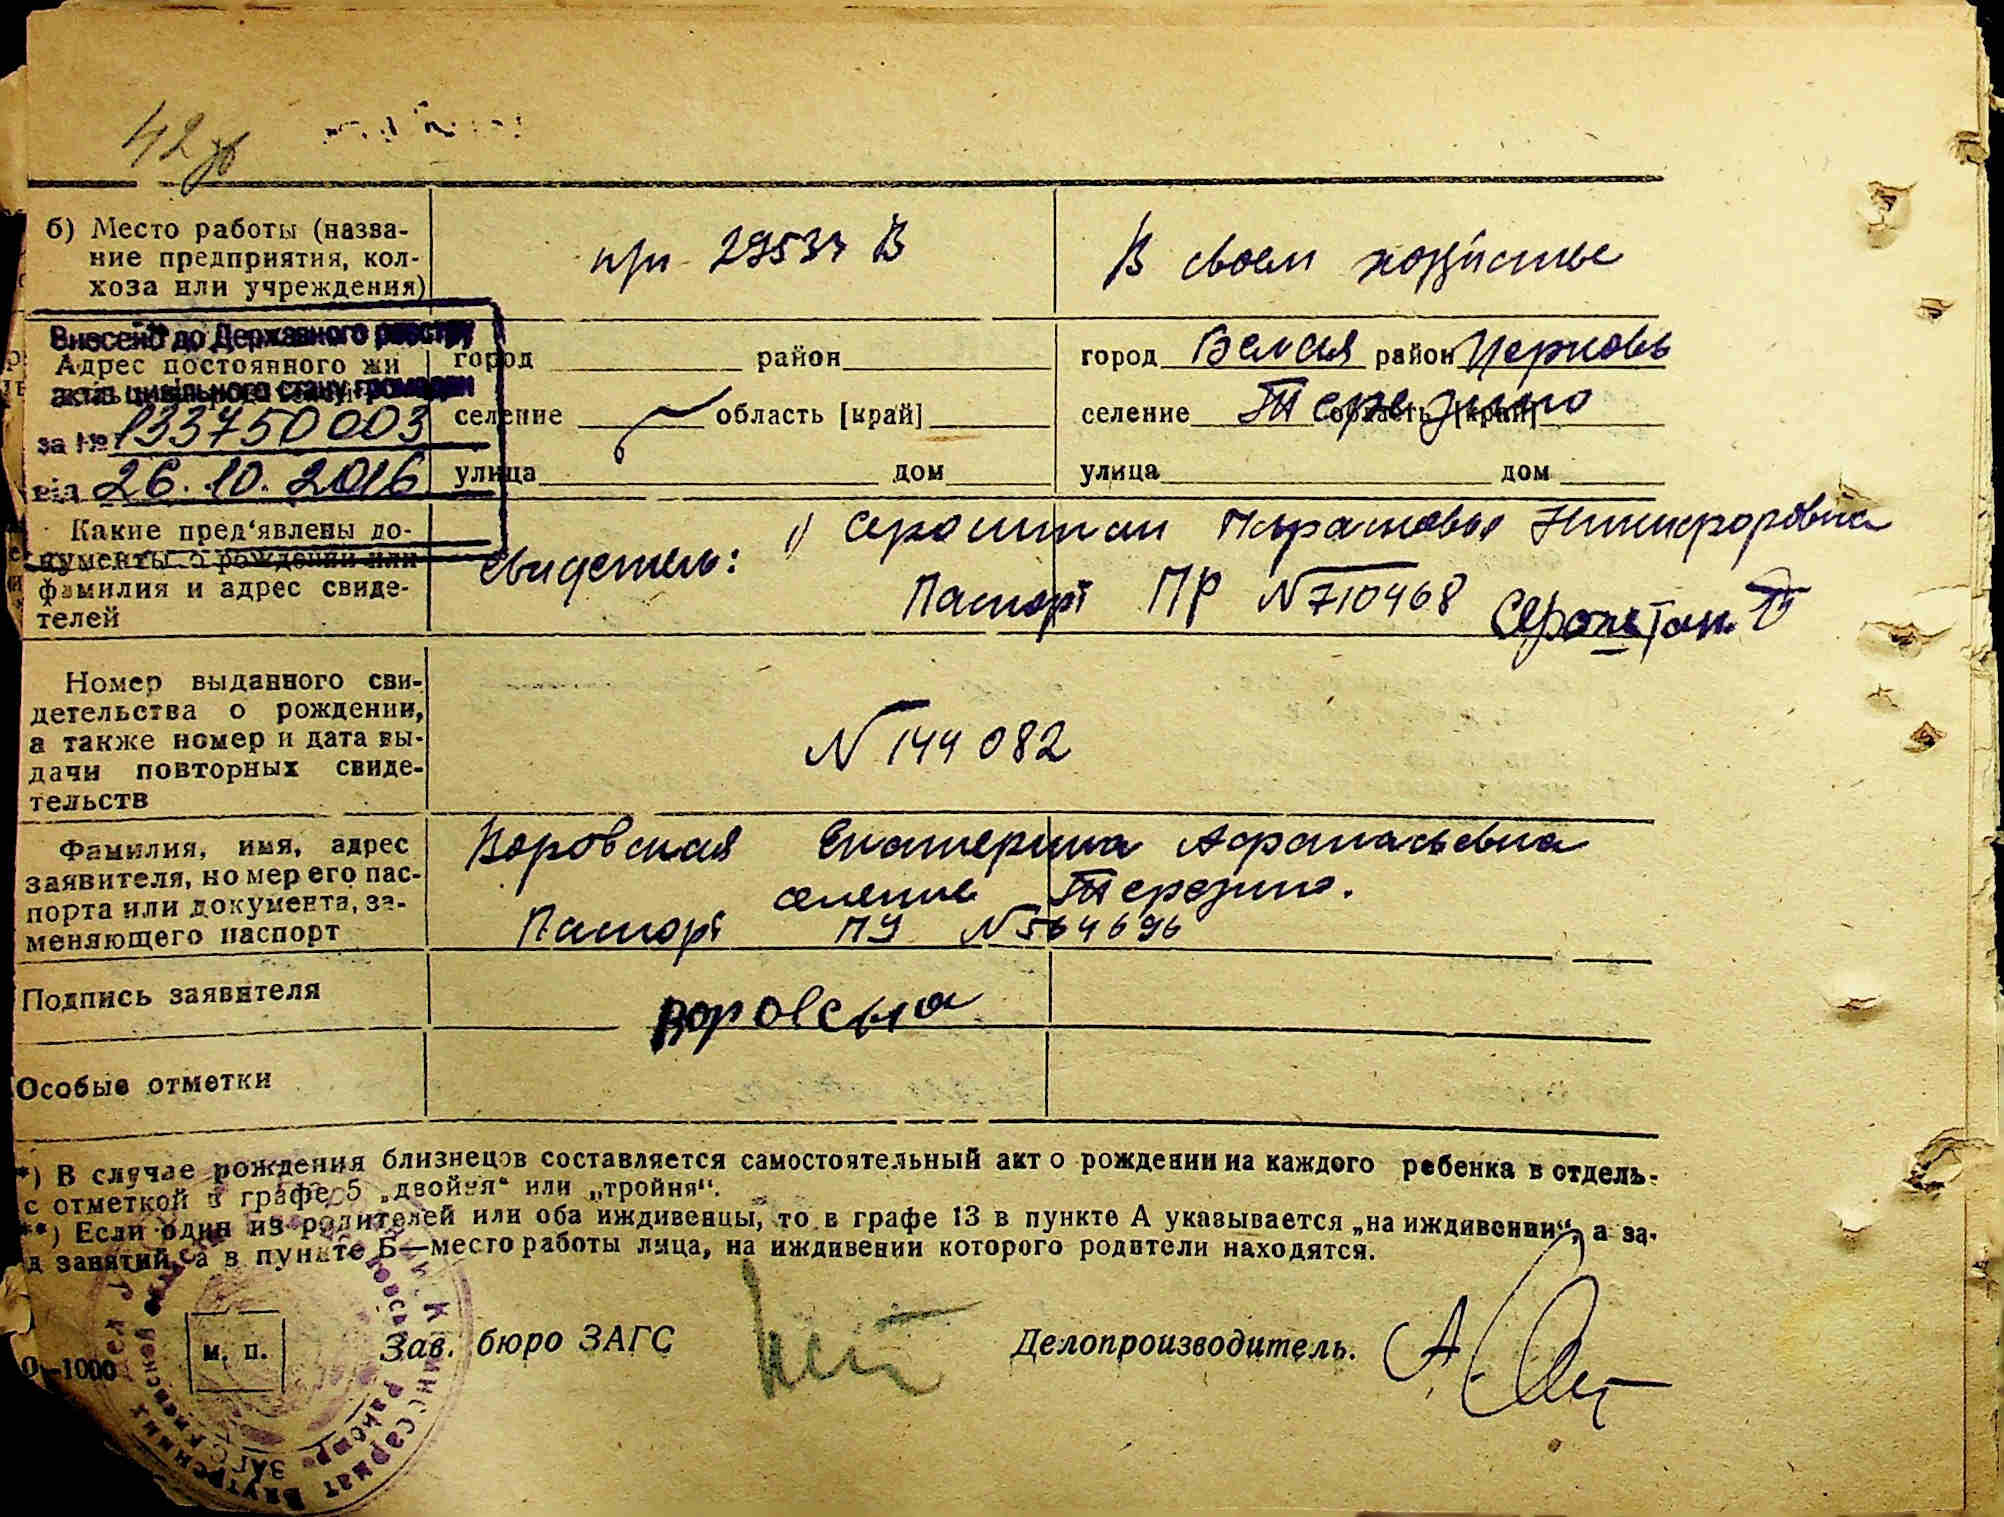 42
б) Место работы (назва-
ние предприятия, кол-
хоза или учреждения)
В своем
Внесено до Державного реєстру
актів цивільного стану громадян
за № 133750003
від 26.10.2016
Адрес постоянного жи
город район
селение область [край]
улица дом
город Белая район Церковь
селение Терезино область [край]
улица дом
Какие пред‘явлены до-
кументы о рождении или
фамилия и адрес свиде-
телей
Свидетель: 1) Никифоровна
Паспорт ПР №710468
Номер выданного сви-
детельства о рождении,
а также номер и дата вы-
дачи повторных свиде-
тельств
№144082
Фамилия, имя, адрес
заявителя, номер его пас-
порта или документа, за-
меняющего паспорт
Воровская Екатерина Афанасьевна
селение Терезино.
Паспорт ПУ №564696
Подпись заявителя
Особые отметки
*) В случае рождения близнецов составляется самостоятельный акт о рождении на каждого ребенка в отдель-
с отметкой в графе 5 „двойня“ или „тройня“.
**) Если один из родителей или оба иждивенцы, то в графе 13 в пункте А указывается „на иждивении“, а за-
д занятий, а в пункте Б—место работы лица, на иждивении которого родители находятся.
м. п.
Зав. бюро ЗАГС Делопроизводитель.
-1000